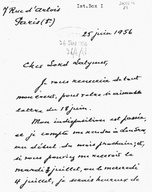 7 Rue d'Artois
Paris (8e)
25 juin 1956
Cher Lord Salymet,
Je vous remercie de tout
mon cœur pour votre si aimable
lettre du 18 juin.
Mon indisposition est passée
et je compte me rendre à Londres
au début du mois prochain; et,
si vous pouviez me recevoir le
mercredi 4 juillet,
4 juillet, je serais heureux de